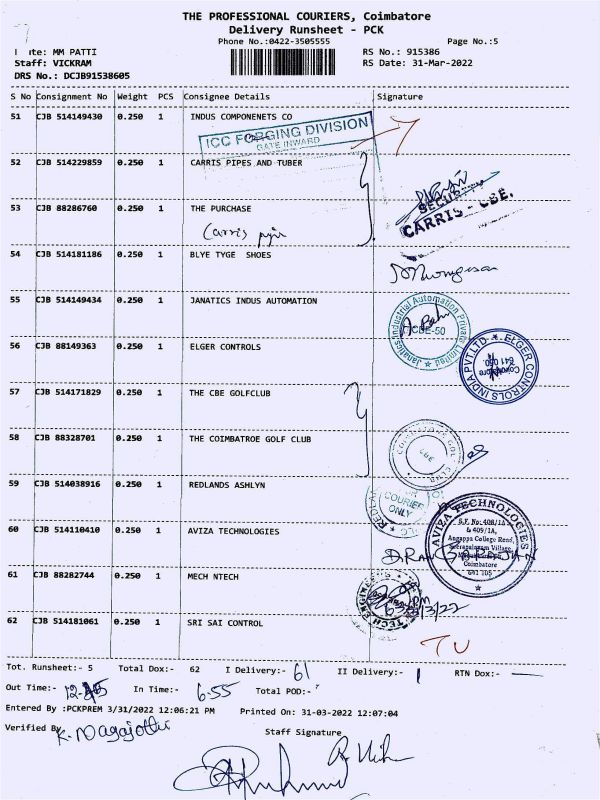 THE PROFESSIONAL COURIERS, Coimbatore
Delivery Runsheet - PCK
Phone No.:0422-3505555 Page No.:5
MM PATTI RS No.: 915386
Staff: VICKRAM RS Date: 31-Mar-2022
DRS No.: DCJB91538605
S No Consignment No Weight PCS Consignee Details Signature
51 CJB 514149430 0.250 1 INDUS COMPONENETS CO
ICC FORGING DIVISION
GATE INWARD
52 CJB 514229859 0.250 1 CARRIS PIPES AND TUBER
53 CJB 88286760 0.250 1 THE PURCHASE
Carris
CARRIS - CBE.
54 CJB 514181186 0.250 1 BLYE TYGE SHOES
55 CJB 514149434 0.250 1 JANATICS INDUS AUTOMATION
Janatics Industrial Automation Private Limited
CBE-50
56 CJB 88149363 0.250 1 ELGER CONTROLS
ELGER CONTROLS INDIA PVT.LTD.
Coimbatore
641 050
57 CJB 514171829 0.250 1 THE CBE GOLFCLUB
58 CJB 88328701 0.250 1 THE COIMBATROE GOLF CLUB
CBE
59 CJB 514038916 0.250 1 REDLANDS ASHLYN
COURIER
ONLY
60 CJB 514110410 0.250 1 AVIZA TECHNOLOGIES
AVIZA TECHNOLOGIES
S.F. No: 408/1A
& 409/1A,
Angappa College Road,
Village
Coimbatore
641 105
61 CJB 88282744 0.250 1 MECH NTECH
TECH ENGINEERS
62 CJB 514181061 0.250 1 SRI SAI CONTROL
Tot. Runsheet:- 5 Total Dox:- 62 I Delivery:- 61 II Delivery:- 1 RTN Dox:-
Out Time:- In Time:- 6-55 Total POD:-
Entered By :PCKPREM 3/31/2022 12:06:21 PM Printed On: 31-03-2022 12:07:04
Verified By K. Nagajothi
Staff Signature